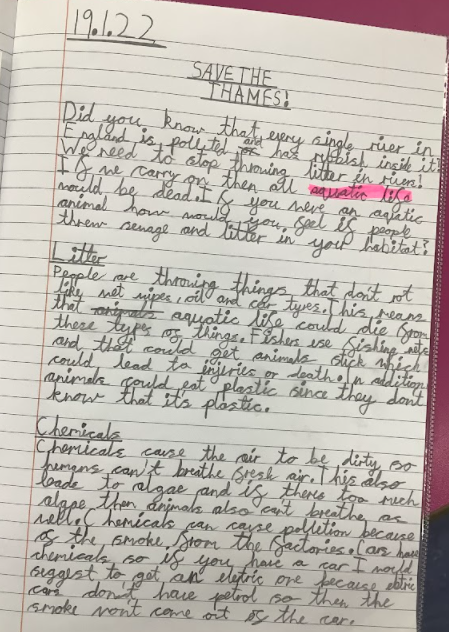 19.1.22
SAVE THE
THAMES!
Did you know that every single river in
England is polluted and has rubbish inside it?
We need to stop throwing litter in rivers!
If we carry on then all aquatic life
would be dead. If you were an aqutic
animal how would you feel if people
threw sewage and litter in your habitat?
Litter
People are throwing things that don't rot
like wet wipes, oil and car tyres. This means
that animals aquatic life could die from
these types of things. Fishers use fishing nets
and that could get animals stuck which
could lead to injuries or death. In addition
animals could eat plastic since they dont
know that it's plastic.
Chemicals
Chemicals cause the air to be dirty so
humans can't breathe fresh air. This also
leads to algae and if theres too much
algae then animals also cant breathe as
well. Chemicals can cause pollution because
of the smoke from the factories. Cars have
chemicals so if you have a car I would
suggest to get an eletric one because eletric
cars don't have petrol so then the
smoke won't come out of the car.